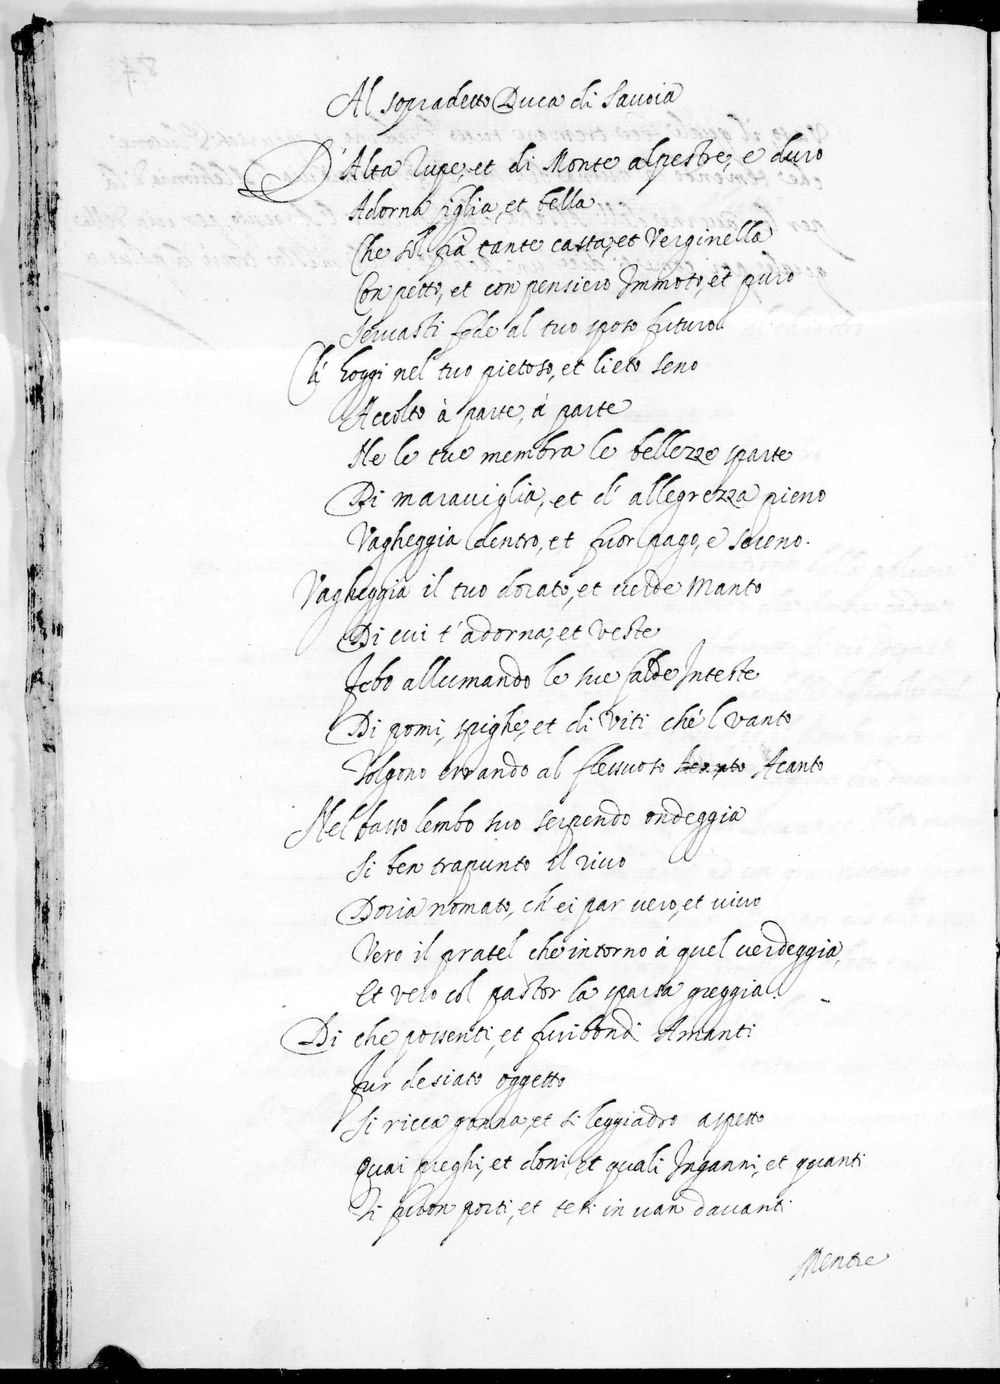 Al sopradetto Duca di Savoia
D'Alta rupe, et di Monte alpestre, e duro
Adorna figlia, et bella
Che sol frà tante casta, et Verginella
Con petto, et con pensiero Immoto, et puro
Servasti fede al tuo sposo futuro.
Ch' hoggi nel tuo pietoso, et lieto seno
Accolto à parte, à parte
Ne le tue membra le bellezze sparte
Di maraviglia, et d' allegrezza pieno
Vagheggia dentro, et fuor pago, e sereno.
Vagheggia il tuo dorato, et verde Manto
Di cui t' adorna, et veste
Febo allumando le sue falde Inteste
Di pomi, spighe, et di viti che'l vanto
Tolgono errando al flessuoso Acanto
Nel basso lembo suo serpendo ondeggia
Si ben trapunto il rivo
Doria nomato, ch' ei par vero, et vivo
Vero il pratel che intorno à quel verdeggia,
Et vero col pastor la sparsa greggia.
Di che possenti, et furibondi Amanti
Fur desiato oggetto
Si ricca gonna, et si leggiadro aspetto
quai preghi, et doni, et quali Inganni, et quanti
Ti furon porti, et tesi in van davanti
Mentre